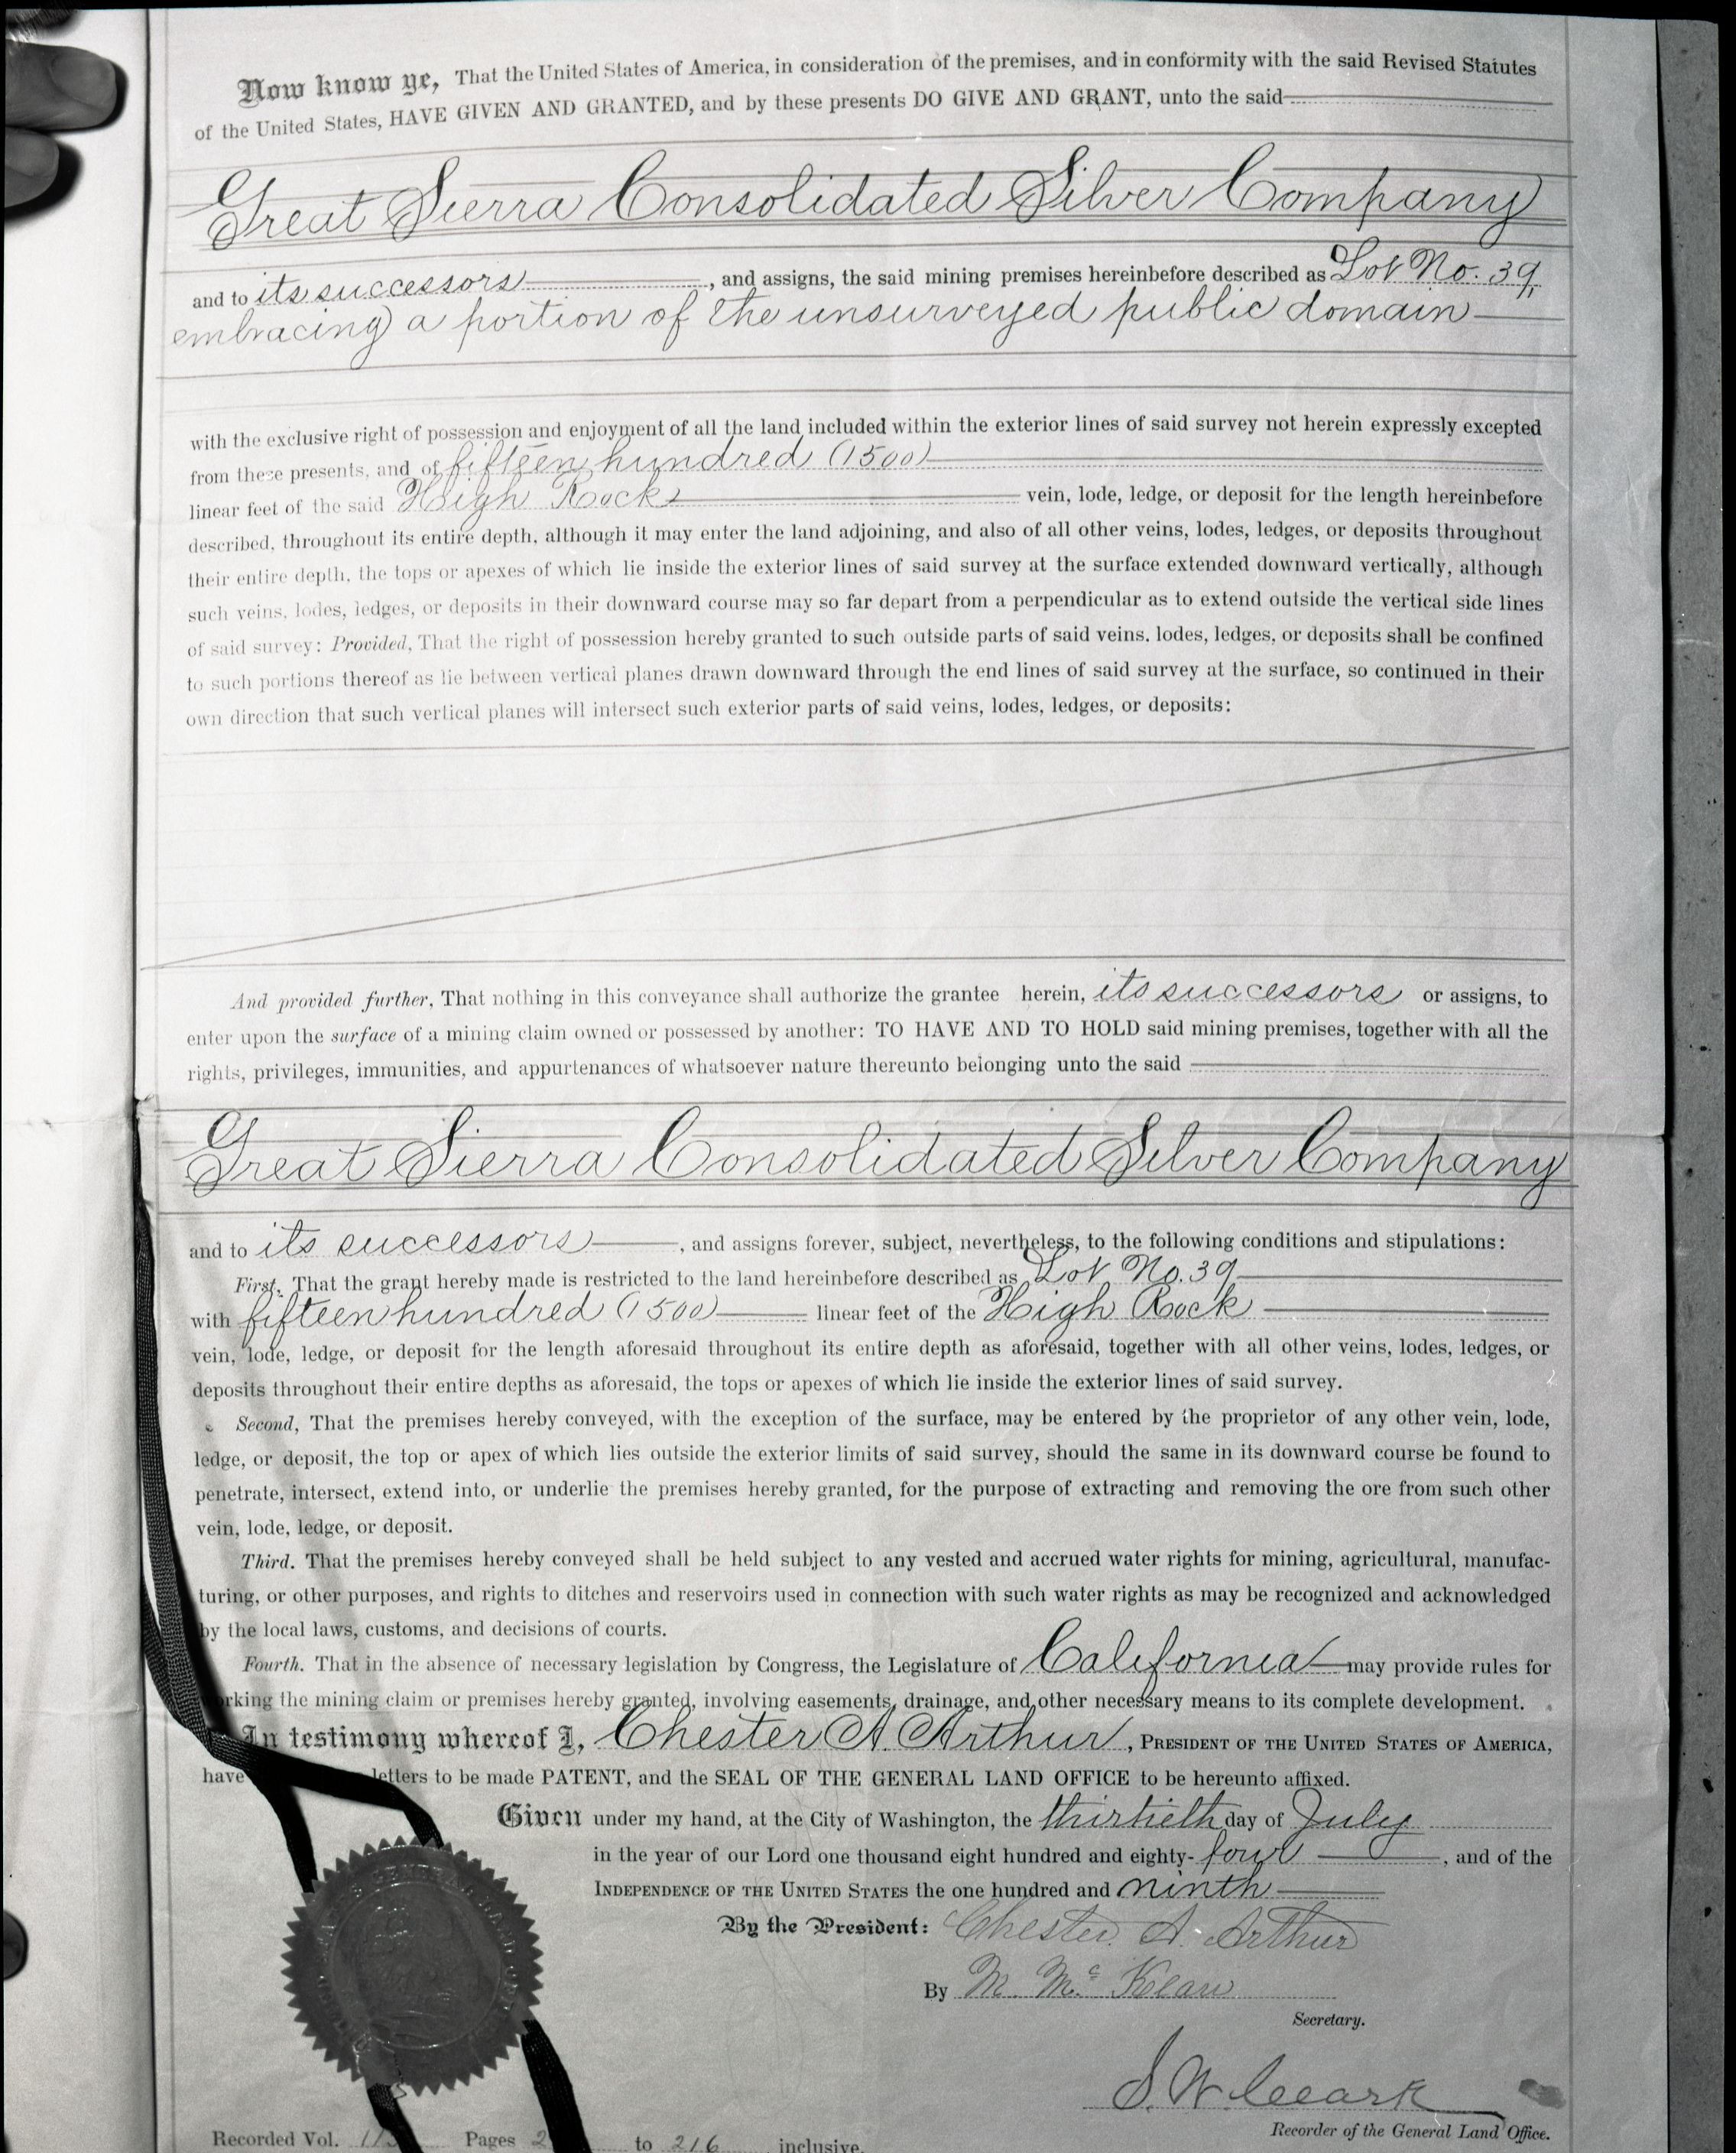 Now know ye, That the United States of America, in consideration of the premises, and in conformity with the said Revised Statutes
of the United States, HAVE GIVEN AND GRANTED, and by these presents DO GIVE AND GRANT, unto the said
Great Sierra Consolidated Silver Company
and to its successors, and assigns, the said mining premises hereinbefore described as Lot No. 39,
embracing a portion of the unsurveyed public domain
with the exclusive right of possession and enjoyment of all the land included within the exterior lines of said survey not herein expressly excepted
from these presents, and of fifteen hundred (1500)
linear feet of the said High Rock vein, lode, ledge, or deposit for the length hereinbefore
described, throughout its entire depth, although it may enter the land adjoining, and also of all other veins, lodes, ledges, or deposits throughout
their entire depth, the tops or apexes of which lie inside the exterior lines of said survey at the surface extended downward vertically, although
such veins, lodes, ledges, or deposits in their downward course may so far depart from a perpendicular as to extend outside the vertical side lines
of said survey: Provided, That the right of possession hereby granted to such outside parts of said veins, lodes, ledges, or deposits shall be confined
to such portions thereof as lie between vertical planes drawn downward through the end lines of said survey at the surface, so continued in their
own direction that such vertical planes will intersect such exterior parts of said veins, lodes, ledges, or deposits:
And provided further, That nothing in this conveyance shall authorize the grantee herein, its successors or assigns, to
enter upon the surface of a mining claim owned or possessed by another: TO HAVE AND TO HOLD said mining premises, together with all the
rights, privileges, immunities, and appurtenances of whatsoever nature thereunto belonging unto the said
Great Sierra Consolidated Silver Company
and to its successors, and assigns forever, subject, nevertheless, to the following conditions and stipulations:
First. That the grant hereby made is restricted to the land hereinbefore described as Lot No. 39
with fifteen hundred (1500) linear feet of the High Rock
vein, lode, ledge, or deposit for the length aforesaid throughout its entire depth as aforesaid, together with all other veins, lodes, ledges, or
deposits throughout their entire depths as aforesaid, the tops or apexes of which lie inside the exterior lines of said survey.
Second, That the premises hereby conveyed, with the exception of the surface, may be entered by the proprietor of any other vein, lode,
ledge, or deposit, the top or apex of which lies outside the exterior limits of said survey, should the same in its downward course be found to
penetrate, intersect, extend into, or underlie the premises hereby granted, for the purpose of extracting and removing the ore from such other
vein, lode, ledge, or deposit.
Third. That the premises hereby conveyed shall be held subject to any vested and accrued water rights for mining, agricultural, manufac-
turing, or other purposes, and rights to ditches and reservoirs used in connection with such water rights as may be recognized and acknowledged
by the local laws, customs, and decisions of courts.
Fourth. That in the absence of necessary legislation by Congress, the Legislature of California may provide rules for
working the mining claim or premises hereby granted, involving easements, drainage, and other necessary means to its complete development.
In testimony whereof I, Chester A. Arthur, PRESIDENT OF THE UNITED STATES OF AMERICA,
have letters to be made PATENT, and the SEAL OF THE GENERAL LAND OFFICE to be hereunto affixed.
Given under my hand, at the City of Washington, the thirtieth day of July
in the year of our Lord one thousand eight hundred and eighty-four, and of the
INDEPENDENCE OF THE UNITED STATES the one hundred and ninth
By the President: Chester A. Arthur
By M. McKean
Secretary.
S. W. Clark
Recorder of the General Land Office.
Recorded Vol. Pages to 216 inclusive.